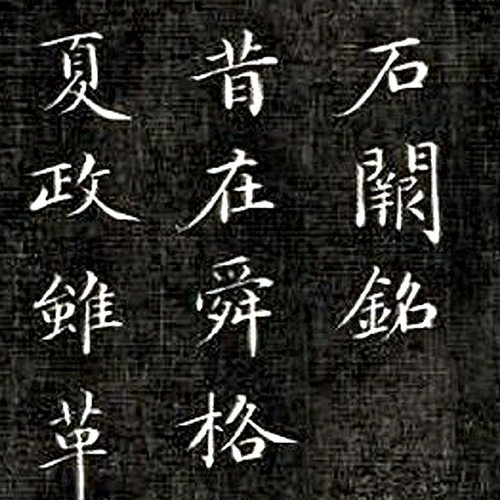 石闕銘
昔在舜格
夏政雖革